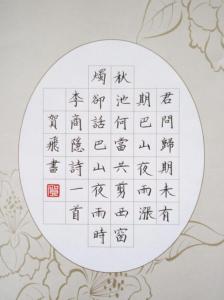 君問歸期未有
期巴山夜雨漲
秋池何當共剪西窗
燭卻話巴山夜雨時
李商隱詩一首
賀飛書